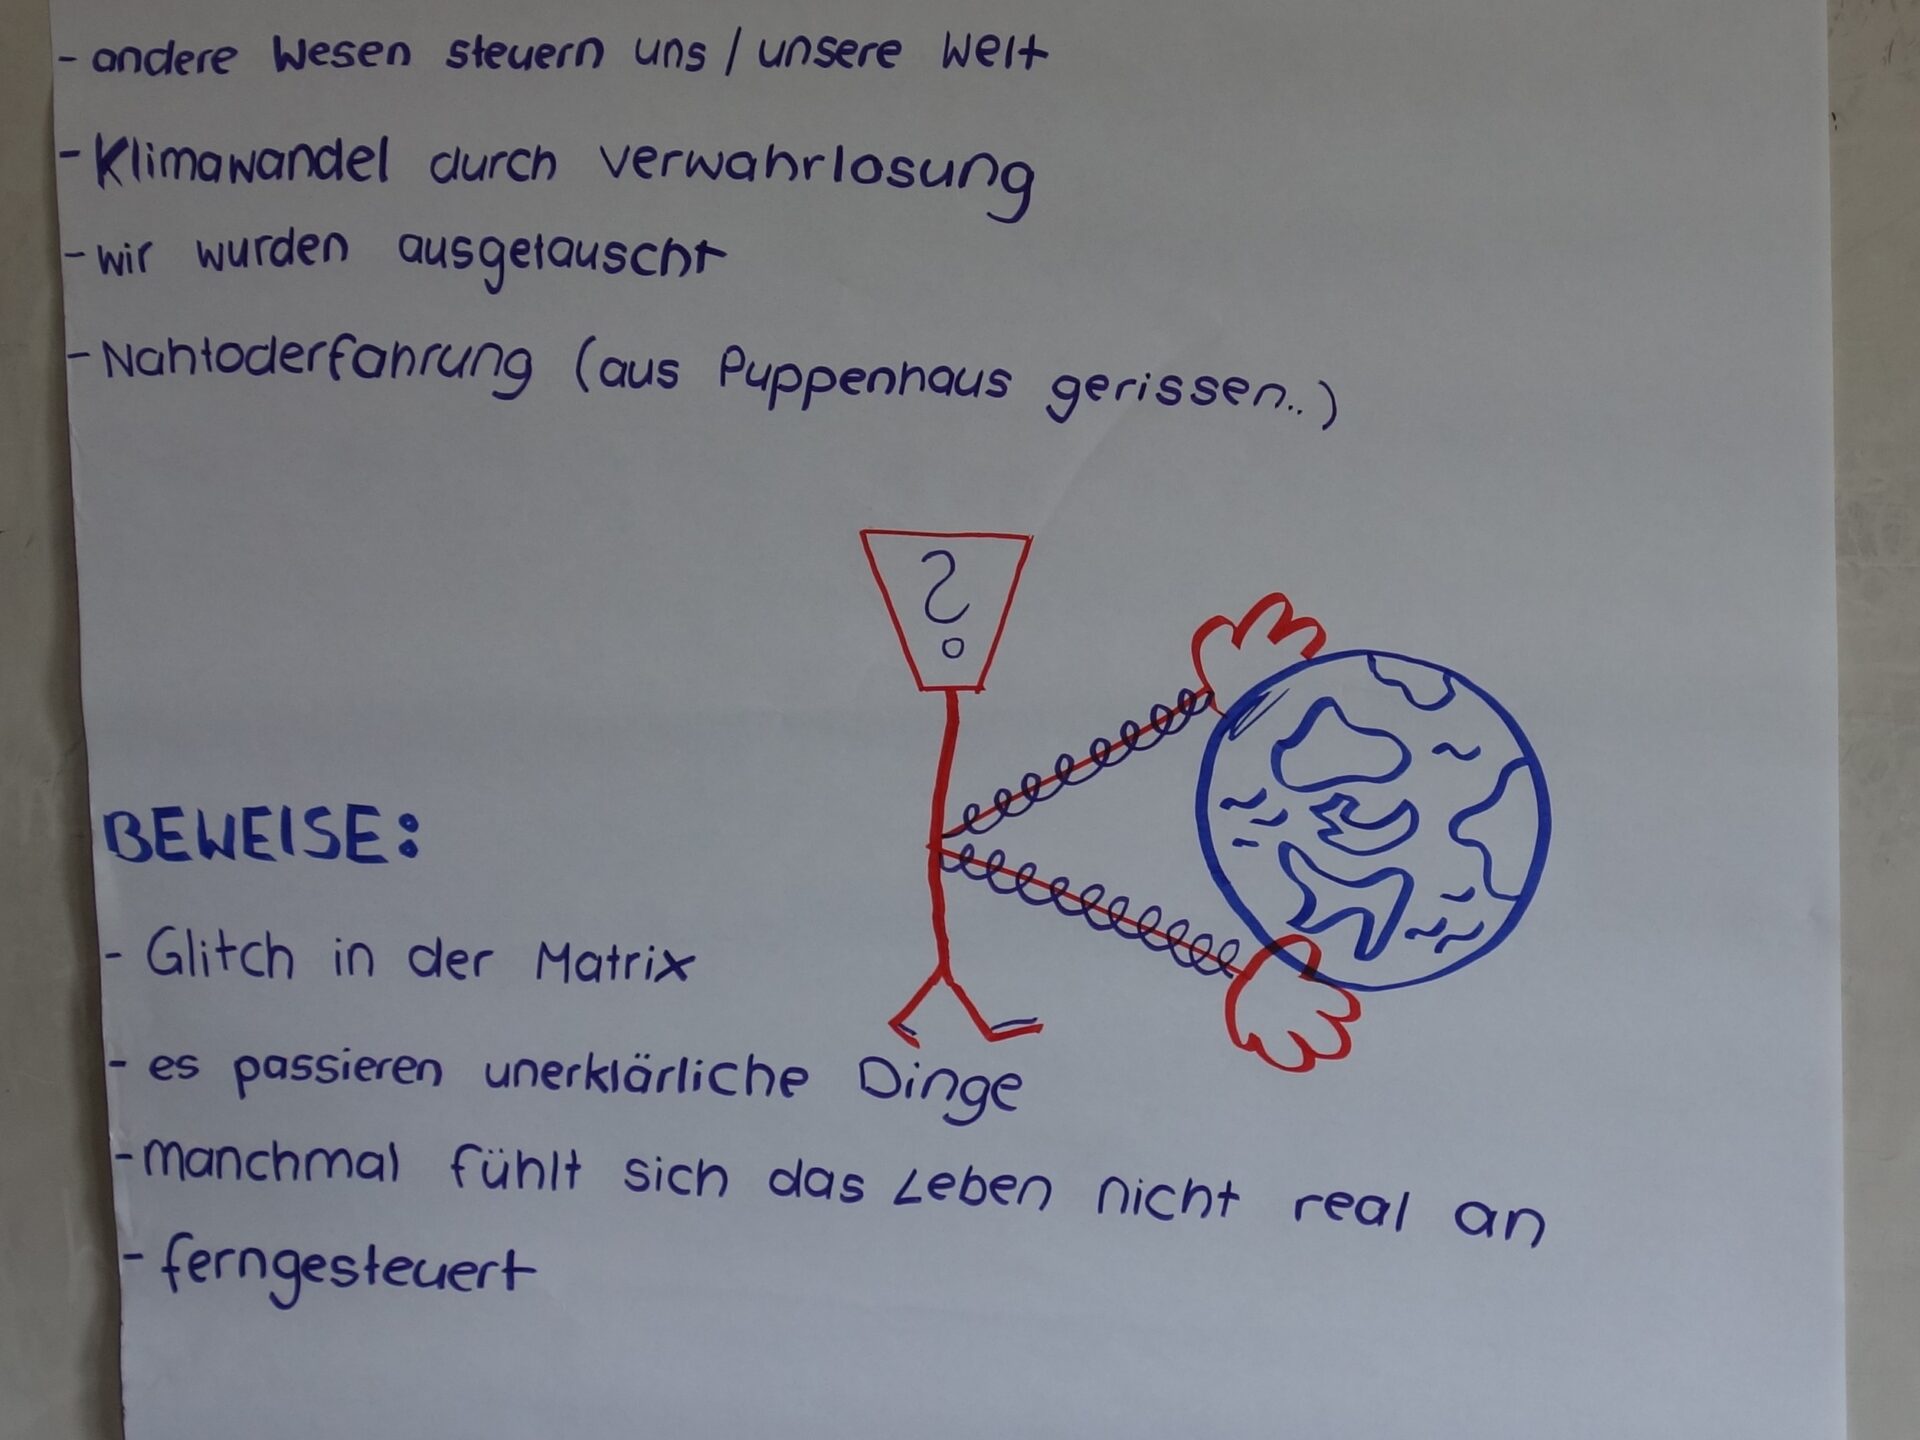 - andere Wesen steuern uns / unsere Welt
- Klimawandel durch Verwahrlosung
- wir wurden ausgetauscht
- Nahtoderfahrung (aus Puppenhaus gerissen..)
?
BEWEISE:
- Glitch in der Matrix
- es passieren unerklärliche Dinge
- manchmal fühlt sich das Leben nicht real an
- ferngesteuert